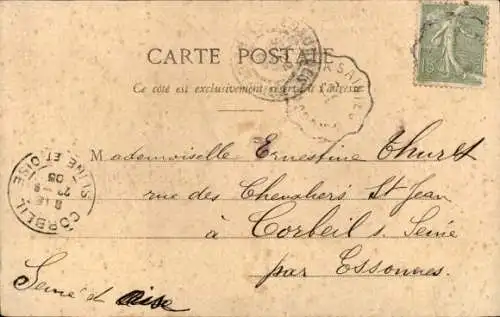 CARTE POSTALE
Ce côté est exclusivement réservé à l'adresse
Mademoiselle Ernestine Thuret
rue des Chevaliers St Jean
à Corbeil s. Seine
par Essonnes.
Seine et Oise
CORBEIL
SEINE ET OISE
05
15